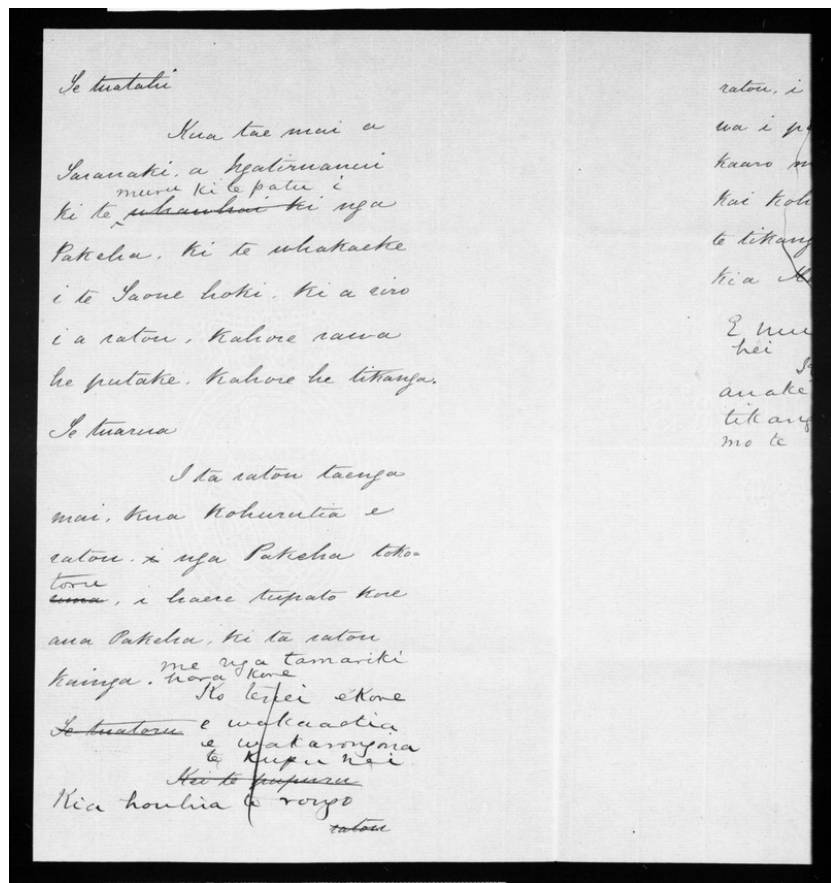 Te tuatahi
Kua tae mai a
Taranaki, a Ngatiruanui
muru ki te patu i
ki te whawhai ki nga
Pakeha, ki te whakaeke
i te Taone hoki, ki a riro
i a ratou, kahore rawa
he putake, kahore he tikanga.
Te tuarua
I ta ratou taenga
mai, kua kohurutia e
ratou. i nga Pakeha toko-
toru
rima, i haere tupato kore
ana Pakeha, ki ta ratou
me nga tamariki
kainga. hara kore
Ko tenei ekore
Te tuatoru e wakaaetia
e wakarongona
te kupu nei
Kei te pupuru
Kia houhia te rongo
ratou
ratou, i
ua i
kaaro
kai koh
te tikang
kia
E
hei
anake
tikang
mo te